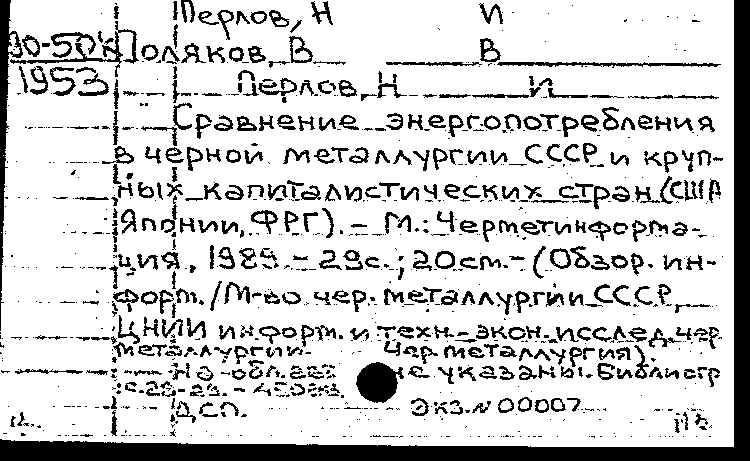 Перлов, Н И
90-50к Поляков, В В
1953 Перлов, Н И
Сравнение энергопотребления
в черной металлургии СССР и круп-
ных капиталистических стран (США
Японии, ФРГ). – М.: Черметинформа-
ция, 1989. – 29с.; 20см. – (Обзор. ин-
форм. / М-во чер. металлургии СССР,
ЦНИИ информ. и техн.-экон. исслед. чер
металлургии. Чер. металлургия).
На обл. авт не указаны. Библиогр
ДСП. Экз. № 00007